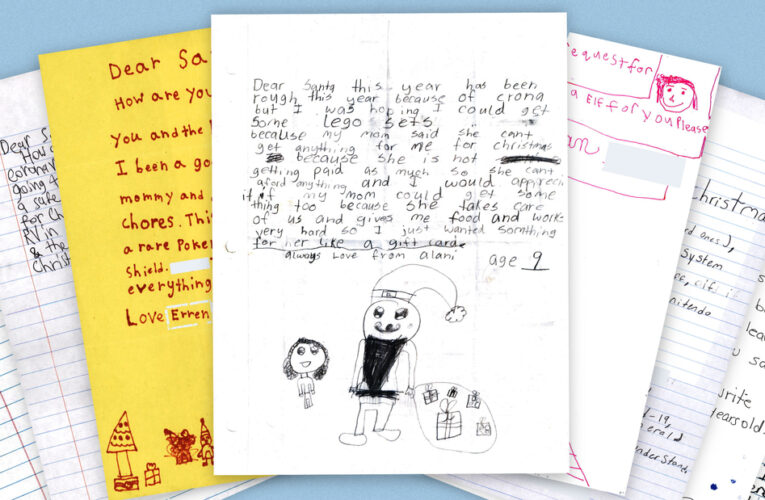 Dear S
How
coronav
going t
a safe
for Ch
RV in
& the
Christ
Dear Sa
How are you
you and the
I been a go
mommy and
chores. This
a rare Poke
shield.
everything
Love Erren
Dear Santa this year has been
rough this year because of crona
but I was hoping I could get
some lego sets
because my mom said she cant
get anything for me for christmas
because she is not
getting paid as much so she cant
aford anything and I would appreci
it if my mom could get some
thing too because she takes care
of us and gives me food and works
very hard so I just wanted somthing
for her like a gift card.
always Love from alani age 9
equest for
a Elf for you Please
an.
hristma
rd ones),
System
ff, elf, i
nitendo
-19,
erald
nderstands
lea
u sa
write
years old.